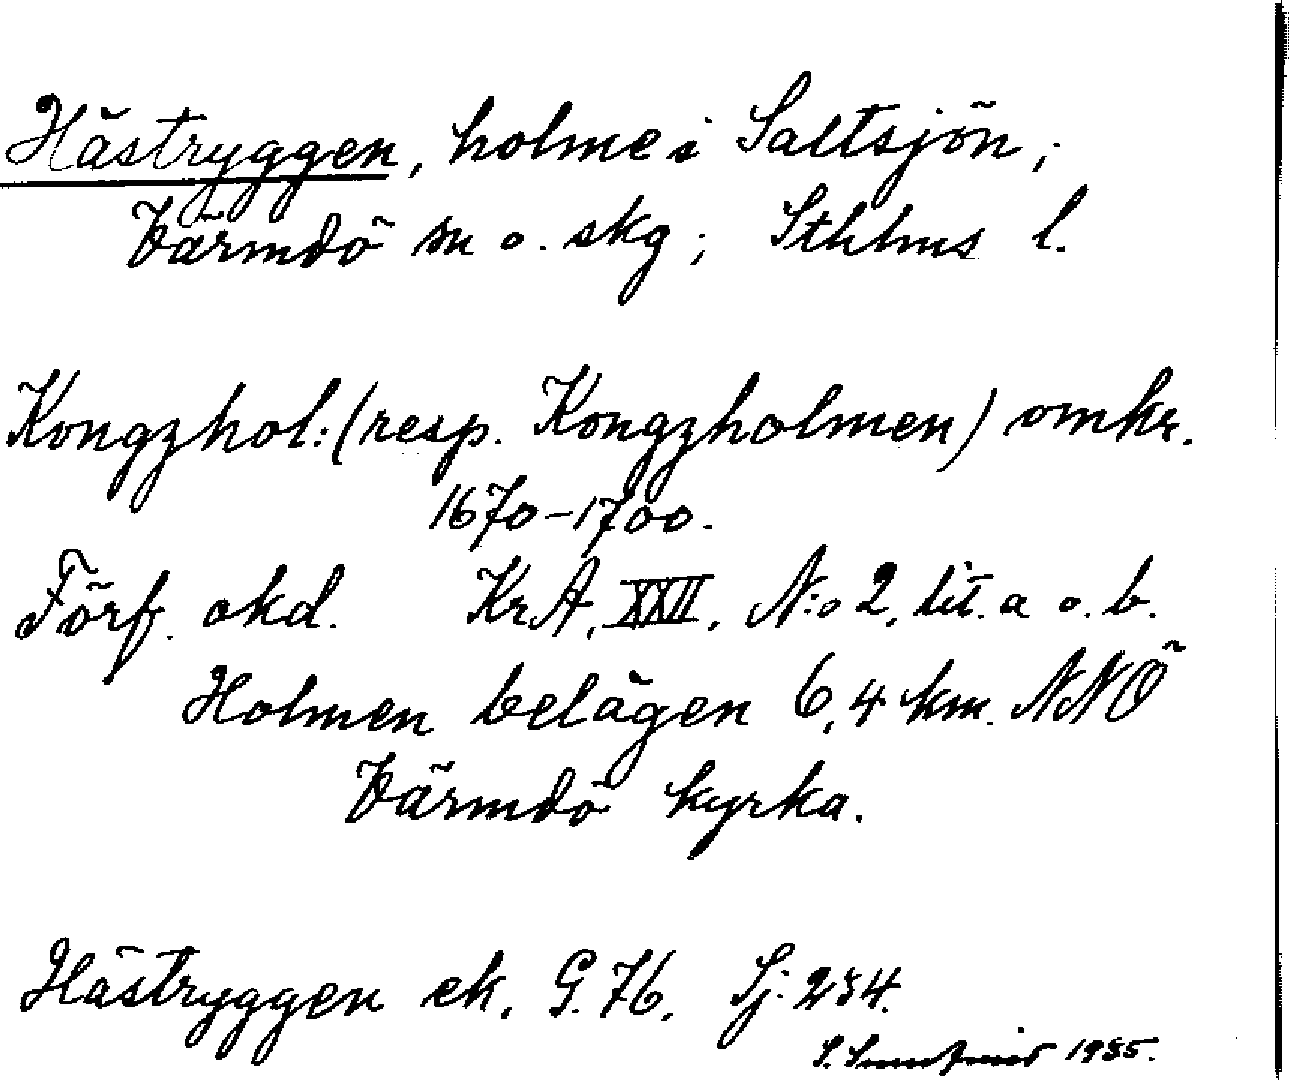 Hästryggen, holme i Saltsjön;
Värmdö sn o. skg; Sthlms l.
Kongzhol: (resp. Kongzholmen) omkr.
1670-1700.
Förf. okd. KrA, XXII, N:o 2, lit. a o. b.
Holmen belägen 6,4 km. NNÖ
Värmdö kyrka.
Hästryggen ek. G. 76, Sj: 234.
S. 1935.